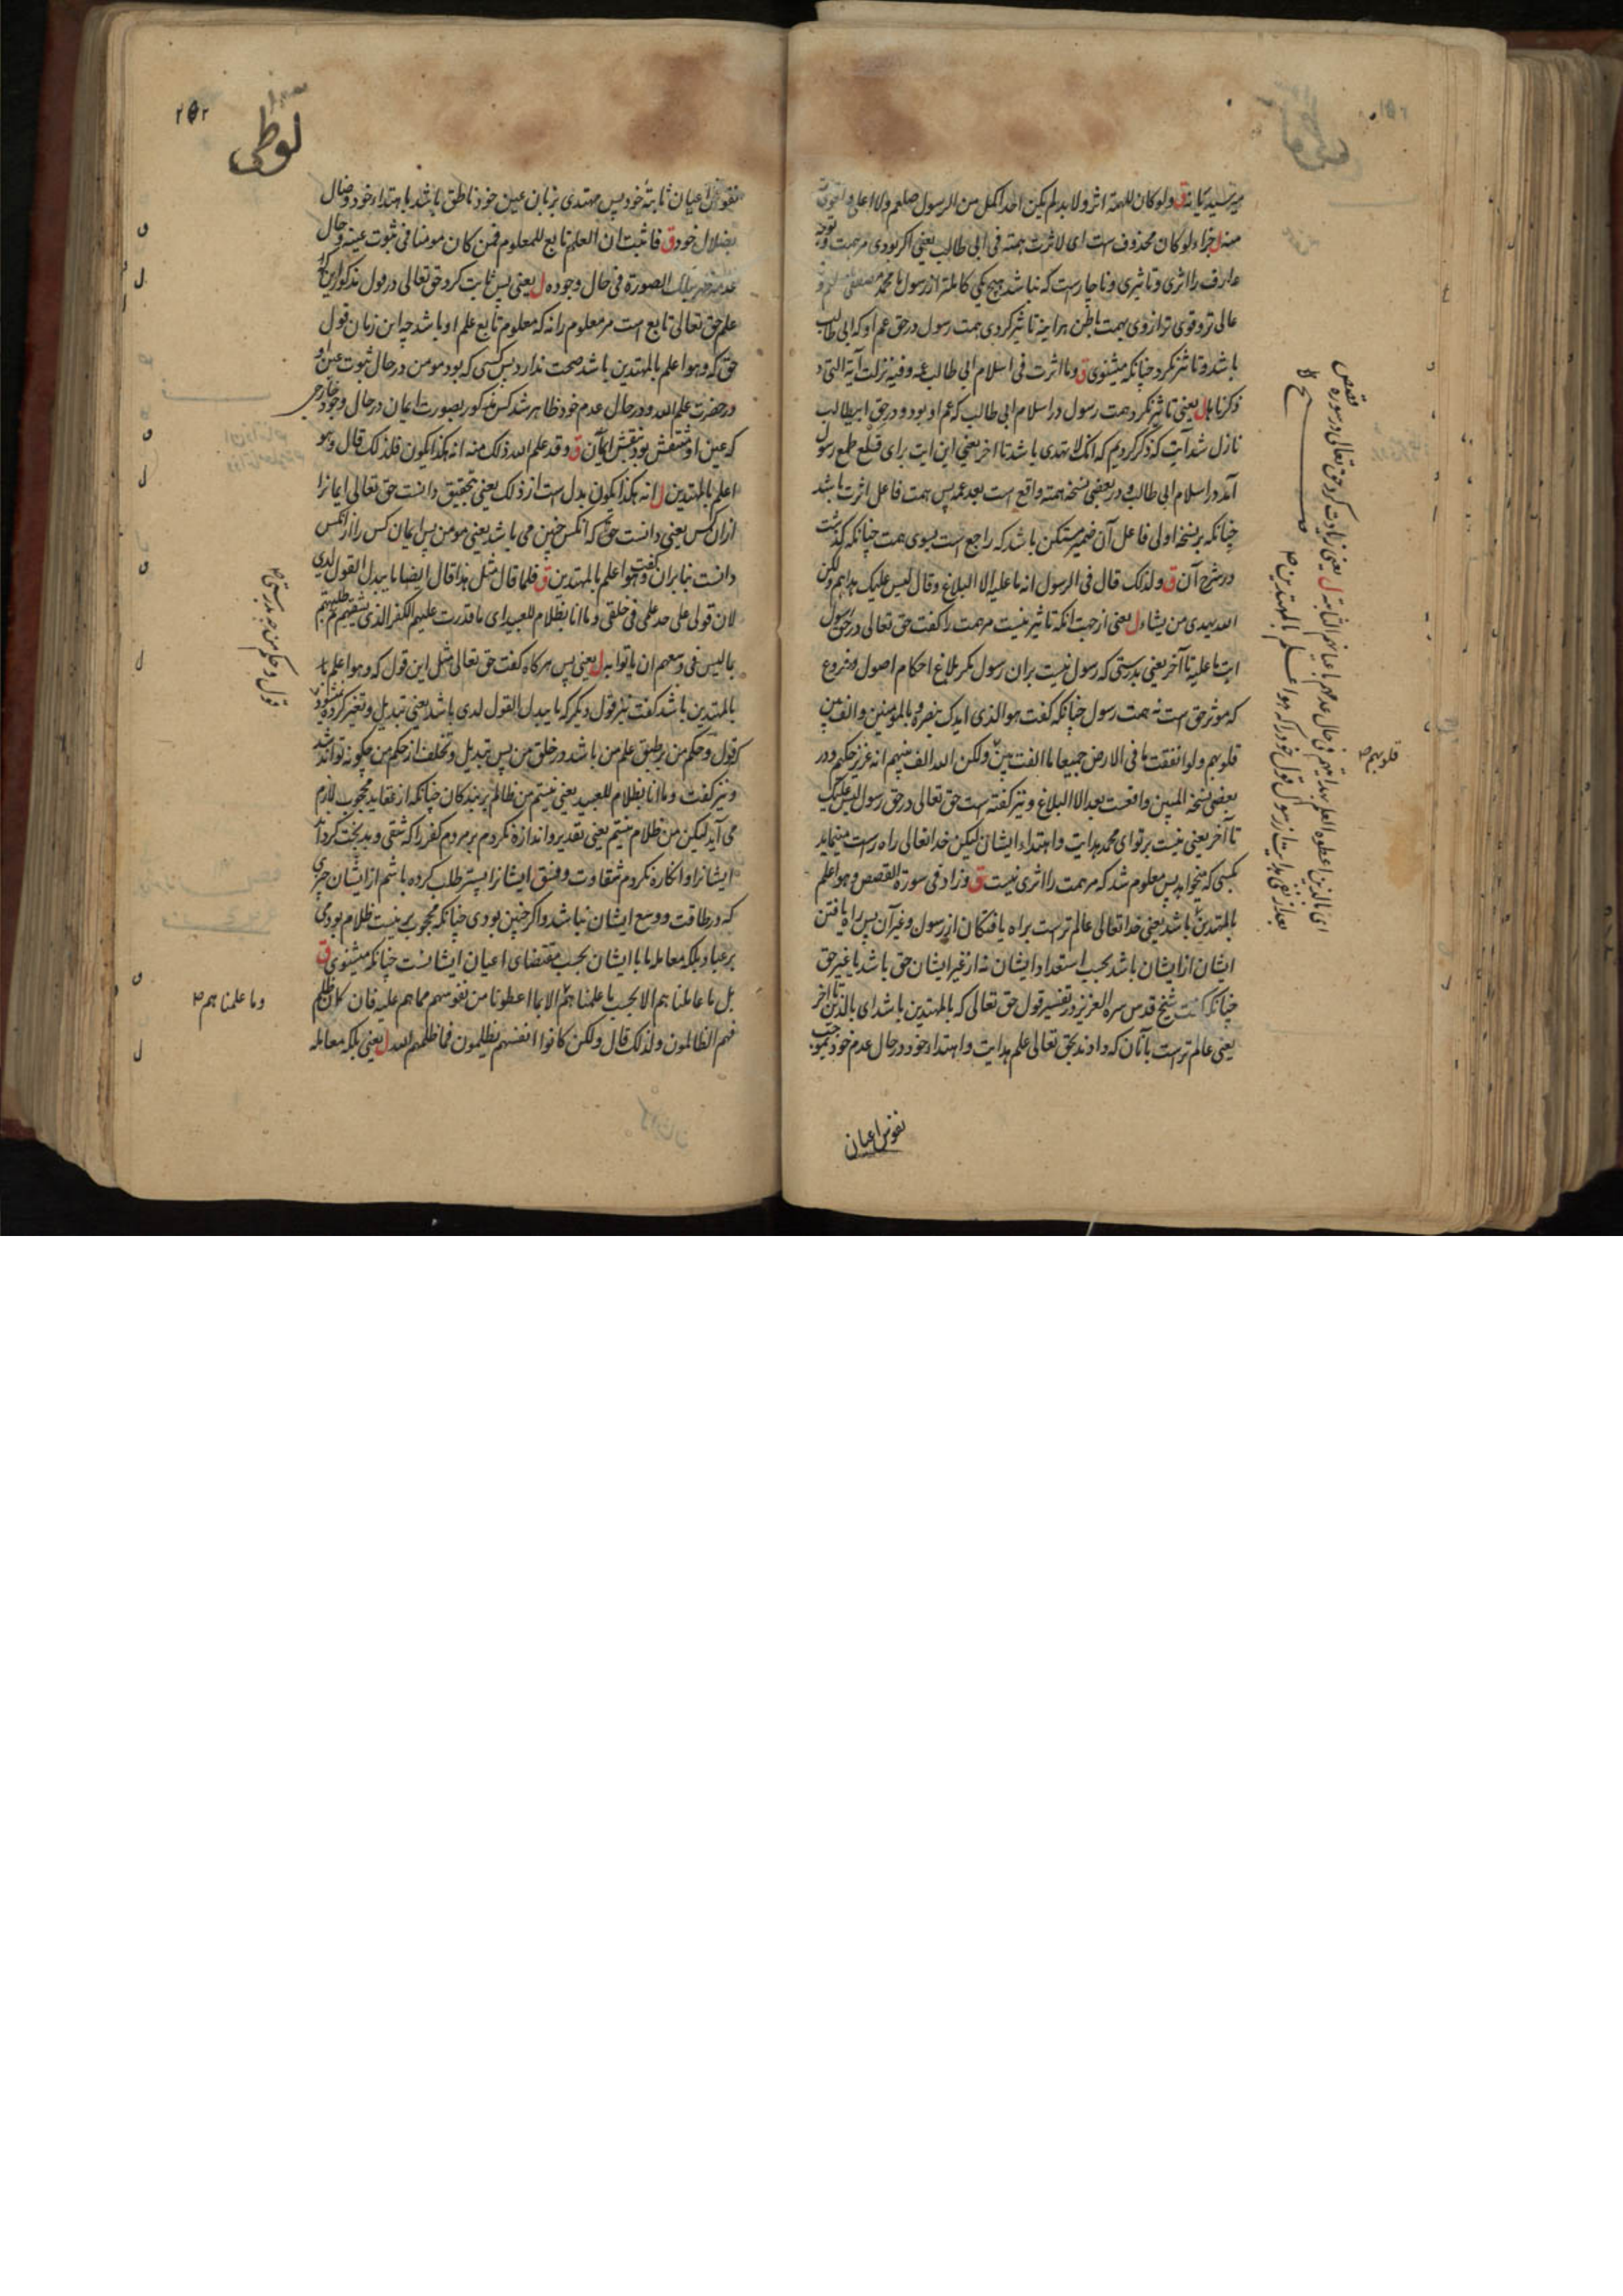 میرسید یا نه ق ولو کان للهمة اثر ولا بد لم یکن احد اکمل من الرسول صلعم ولا اعلی واقوی
همة منه ل جزاء لو کان محذوف ست ای لاثرت همته فی ابی طالب یعنی اکر بودی مر همت
عارف را اثری و تاثیری و ناچارست که نباشد هیچ یکی کاملتر از رسول ما محمد مصطفی
عالی تر و قوی تر از وی بهمت باطن هراینه تاثیر کردی همت رسول در حق عم او که ابی طالب
باشد و تاثیر نکرد چنانکه میشنوی ق وما اثرت فی اسلام ابی طالب عمه وفیه نزلت آیة التی
ذکرناها ل یعنی تاثیر نکرد همت رسول در اسلام ابی طالب که عم او بود و در حق ابیطالب
نازل شد آیت که ذکر کردیم که انک لا تهدی باشد تا اخر یعنی این ایت برای قطع طمع رسول
آمد در اسلام ابی طالب و در بعضی نسخه همته واقع است بعد عمه پس همت فاعل اثرت باشد
چنانکه بر نسخه اولی فاعل آن ضمیر مستکن باشد که راجع است بسوی همت چنانکه گذشت
در شرح آن ق ولذلک قال فی الرسول انه ما علیه الا البلاغ وقال لیس علیک هداهم ولکن
الله یهدی من یشاء ل یعنی از جهت انکه تاثیر نیست مر همت را کفت حق تعالی در حق رسول
ایت ما علیه تا آخر یعنی بدرستی که رسول نیست بران رسول مکر بلاغ احکام اصول و فروع
که موثر حق است نه همت رسول چنانکه کفت هو الذی ایدک بنصره و بالمومنین والف بین
قلوبهم ولو انفقت ما فی الارض جمیعا ما الفت بین ولکن الله الف بینهم انه عزیز حکیم و در
بعضی نسخه المبین واقعست بعد الا البلاغ و نیز کفته است حق تعالی در حق رسول لیس علیک
تا آخر یعنی نیست بر تو ای محمد هدایت و اهتداء ایشان لیکن خدا تعالی راه راست مینماید
بکسی که میخواهد پس معلوم شد که مر همت را اثری نیست ق وزاد فی سورة القصص وهو اعلم
بالمهتدین باشد یعنی خدا تعالی عالم ترست براه یافتکان از رسول و غیر آن پس راه یافتن
ایشان از ایشان باشد بحسب استعداد ایشان نه از غیر ایشان حق باشد یا غیر حق
چنانکه کفت شیخ قدس سره العزیز در تفسیر قول حق تعالی که بالمهتدین باشد ای بالذین تا اخر
یعنی عالم ترست بآنان که دادند بحق تعالی علم هدایت و اهتداء خود در حال عدم خود
نفوس اعیان
قلوبهم صح
ای بالذین اعطوه العلم بهدایتهم فی حال عدمهم باعیانهم الثابتة ل یعنی زیادت کرد حق تعالی در سوره قصص
بعد از نفی هدایت از رسول قول خود را که هو اعلم بالمهتدین صح
لوطی
۲۵۲
نفوس اعیان ثابتهٔ خود پس مهتدی بزبان عین خود ناطق باشد باهتداء خود و ضال
بضلال خود ق فاثبت ان العلم تابع للمعلوم فمن کان مومنا فی ثبوت عینه وحال
عدمه ظهر بتلک الصورة فی حال وجوده ل یعنی پس ثابت کرد حق تعالی در قول مذکور این که
علم حق تعالی تابع است مر معلوم را نه که معلوم تابع علم او باشد چه این زمان قول
حق که وهو اعلم بالمهتدین باشد صحت ندارد پس کسی که بود مومن در حال ثبوت عین او
در حضرت علم الله و در حال عدم خود ظاهر شد کس مذکور بصورت ایمان در حال وجود خارجی
که عین او منتقش بود بنقش ایمان ق وقد علم الله ذلک منه انه هکذا یکون فلذلک قال وهو
اعلم بالمهتدین ل انه هکذا یکون بدل ست از ذلک یعنی بتحقیق دانست حق تعالی ایمانرا
ازان کس یعنی دانست حق که انکس چنین می باشد یعنی مومن پس ایمان کس را از انکس
دانست بنابران کفت وهو اعلم بالمهتدین ق فلما قال مثل هذا قال ایضا ما یبدل القول لدی
لان قولی علی حد علمی فی خلقی وما انا بظلام للعبید ای ما قدرت علیهم الکفر الذی یشقیهم ثم طلبتهم
بما لیس فی وسعهم ان یاتوا به ل یعنی پس هرکاه کفت حق تعالی مثل این قول که وهو اعلم
بالمهتدین باشد کفت نیز قول دیکر که ما یبدل القول لدی باشد یعنی تبدیل و تغیر کرده نشود
قول و حکم من بر طبق علم من باشد در خلق من پس تبدیل و تخلف از حکم من چکونه تواند شد
و نیز کفت وما انا بظلام للعبید یعنی نیستم من ظالم بر بندکان چنانکه از عقاید محجوب لازم
می آید لیکن من ظلام نیستم یعنی تقدیر و اندازه نکردم بر مردم کفر را که شقی و بدبخت کرداند
ایشانرا و انکاره نکردم شقاوت و فسق ایشانرا پستر طلب کرده باشم از ایشان چیزی
که در طاقت و وسع ایشان نباشد و اکر چنین بودی چنانکه محجوب برینست ظلام بودمی
بر عباد بلکه معامله ما با ایشان بحسب مقتضای اعیان ایشانست چنانکه میشنوی ق
بل ما عاملناهم الا بحسب ما علمناهم الا بما اعطونا من نفوسهم مما هم علیه فان کان ظلم
فهم الظالمون ولذلک قال ولکن کانوا انفسهم یظلمون فما ظلمهم الله ل یعنی بلکه معامله
وما علمناهم صح